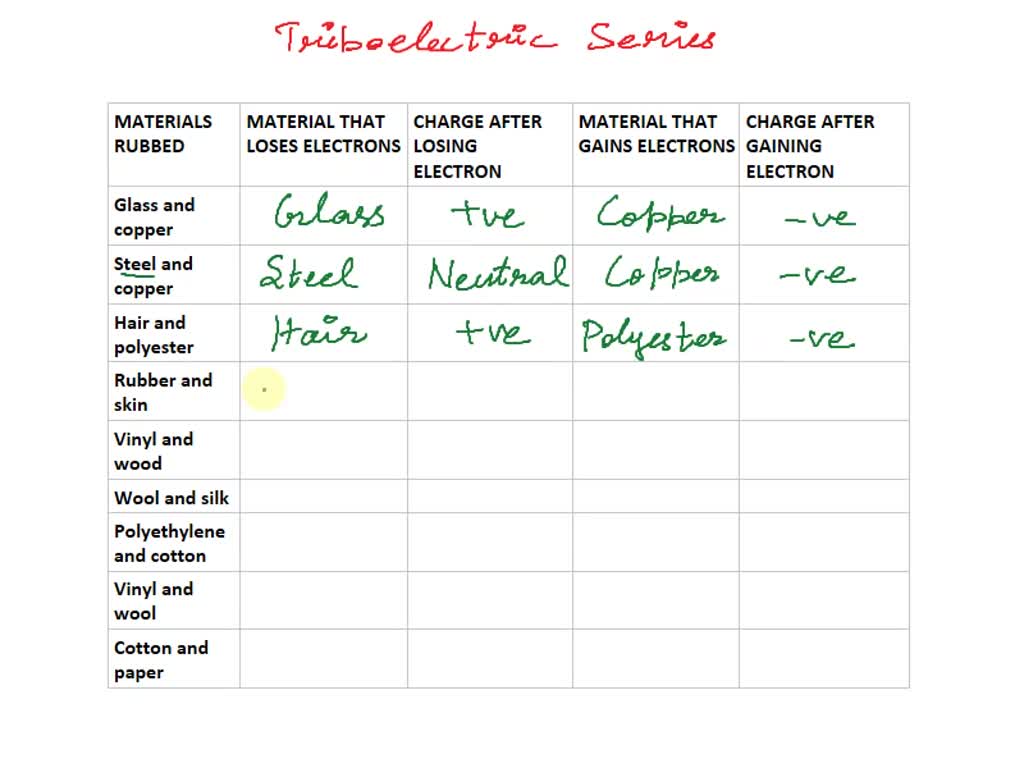 Triboelectric Series
MATERIALS RUBBED
MATERIAL THAT LOSES ELECTRONS
CHARGE AFTER LOSING ELECTRON
MATERIAL THAT GAINS ELECTRONS
CHARGE AFTER GAINING ELECTRON
Glass and copper
Glass
+ve
Copper
-ve
Steel and copper
Steel
Neutral
Copper
-ve
Hair and polyester
Hair
+ve
Polyester
-ve
Rubber and skin
Vinyl and wood
Wool and silk
Polyethylene and cotton
Vinyl and wool
Cotton and paper